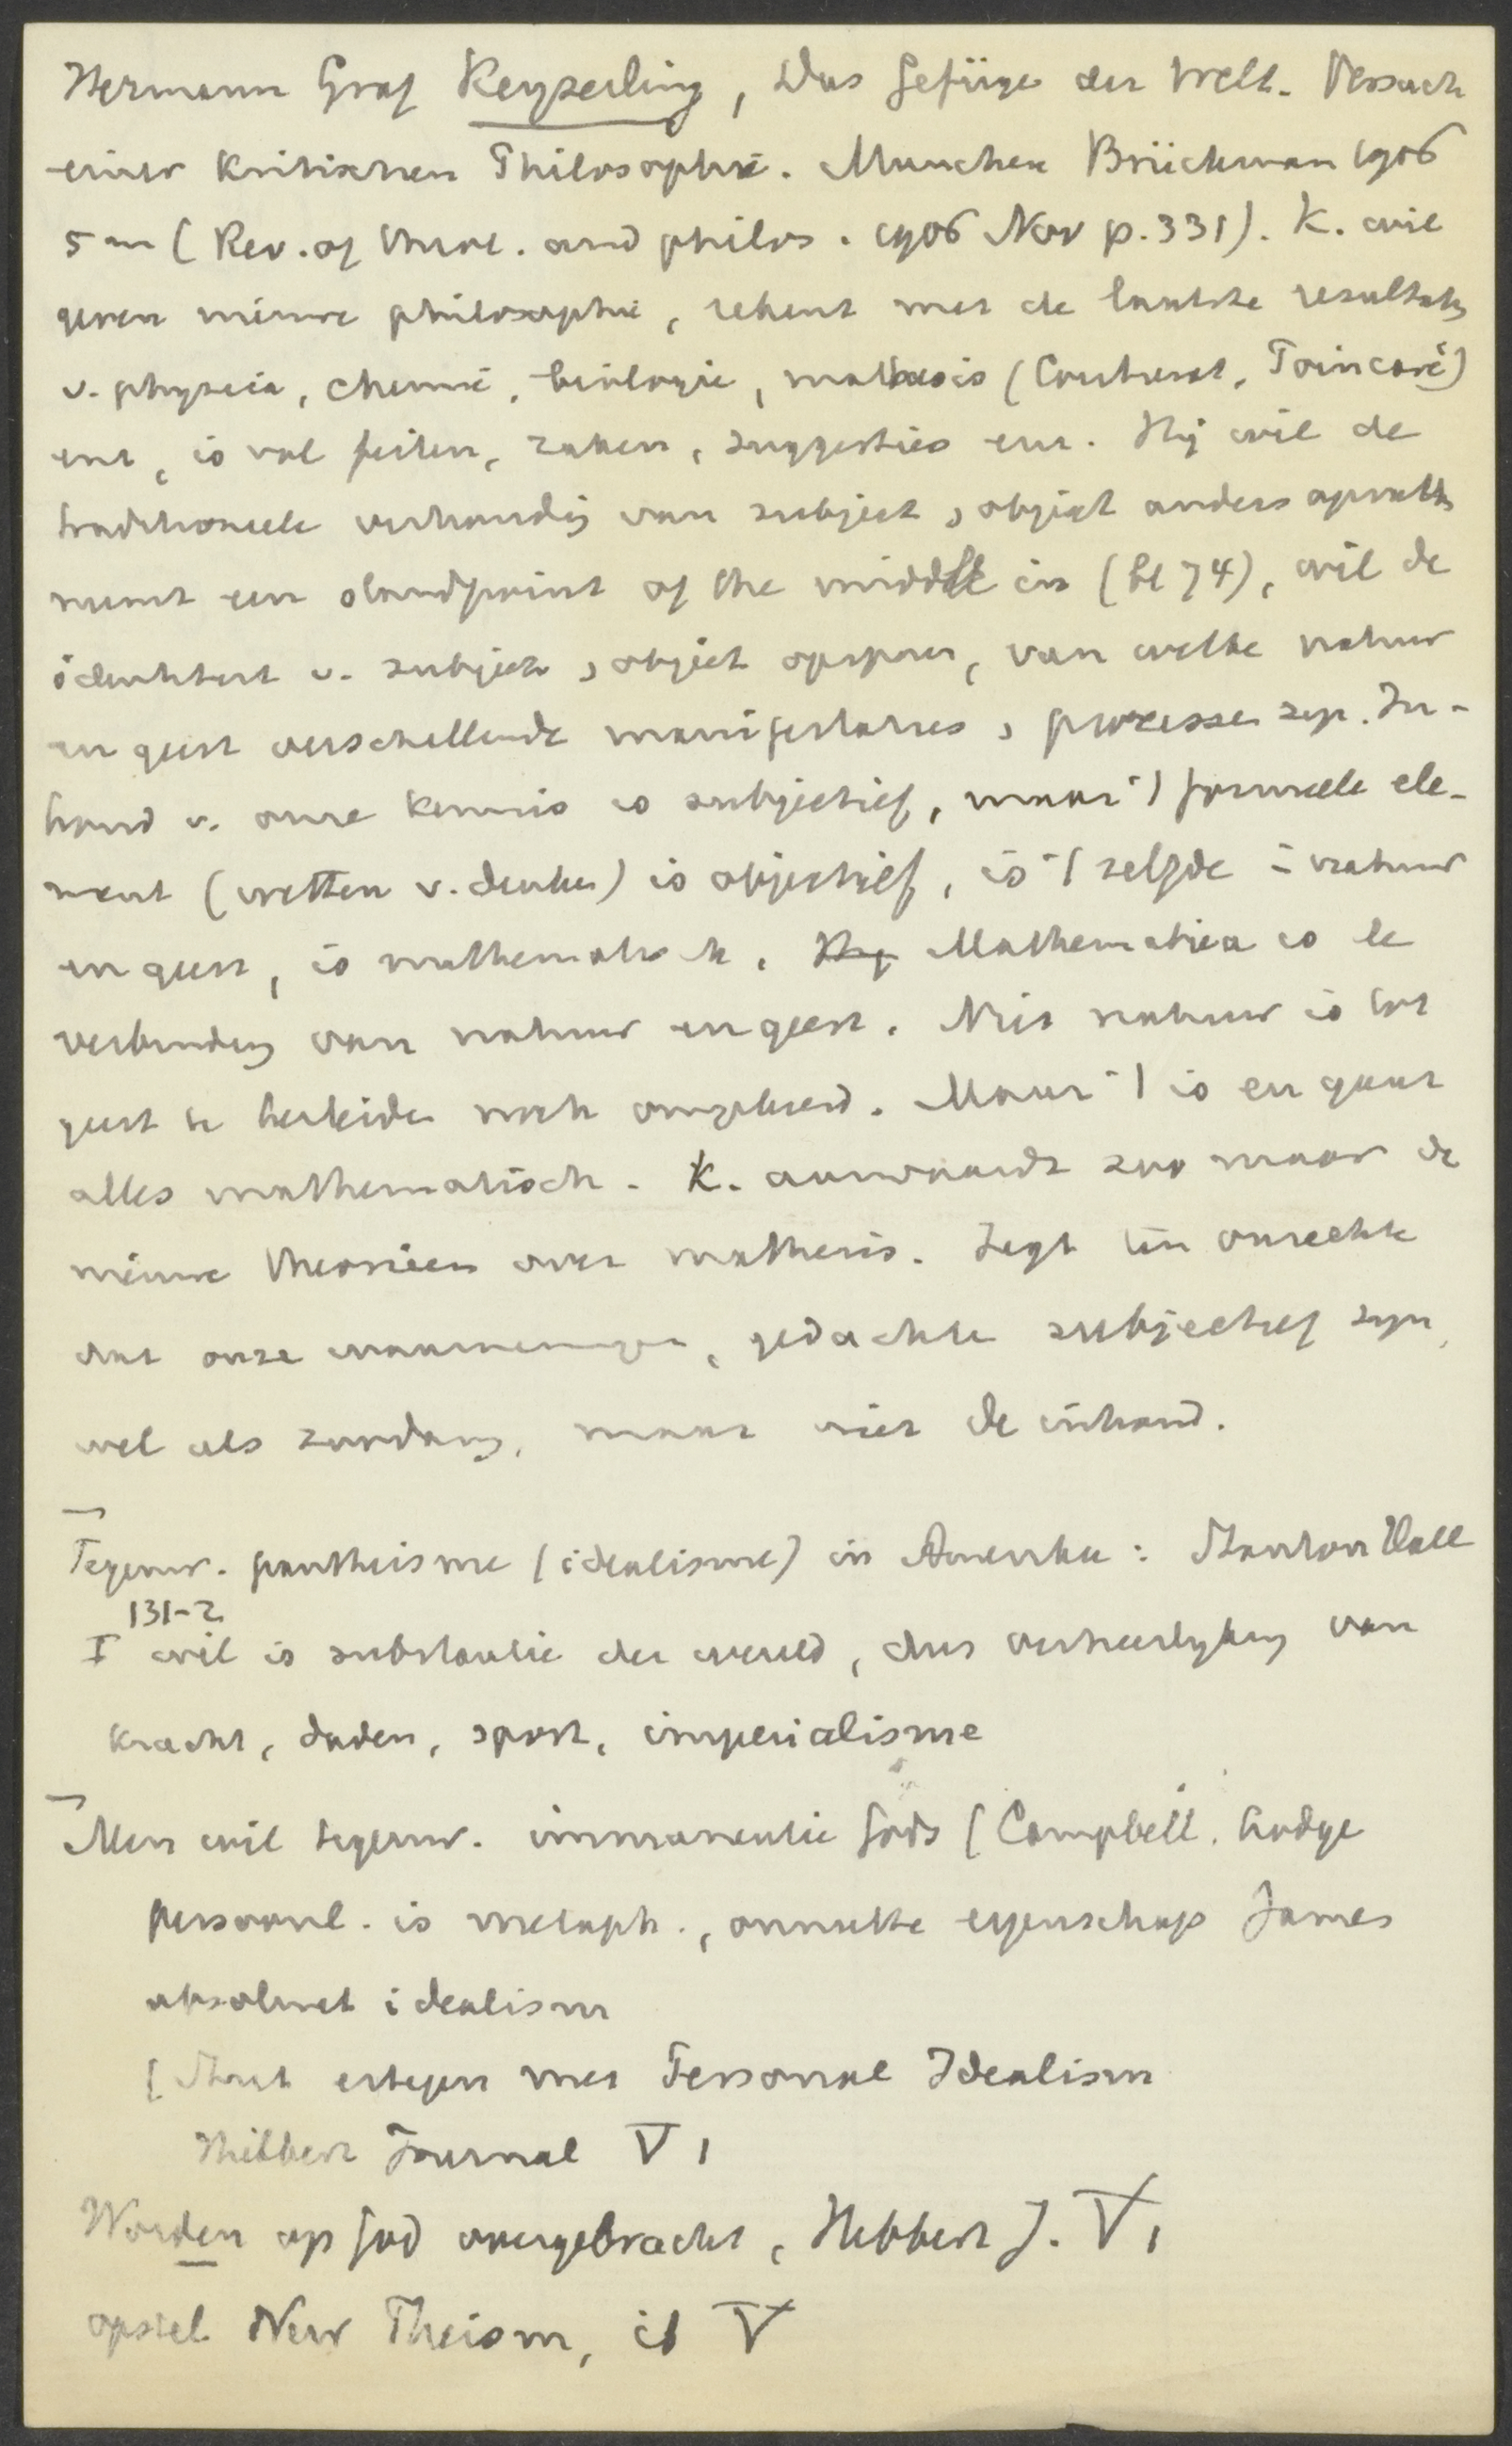 Hermann Graf Keyserling, Das Gefüge der Welt. Versuch
einer kritischen Philosophie. Munchen Brückman 1906
5 m (Rev. of theol. and philos. 1906 Nov p. 331). K. wil
geven nieuwe philosophie, rekent met de laatste resultaten
v. physica, chemie, biologie, mathesis (Couturat, Poincaré)
enz, is vol feiten, zaken, suggesties enz. Hij wil de
traditioneele verhouding van subject, object anders opvatten
neemt een standpoint of the middle in (bl 74), wil de
identiteit v. subject, object opsporen, van welke natuur
en geest verschillende manifestaties, processen zijn. In-
houd v. onze kennis is subjectief, maar 't formeele ele-
ment (wetten v. denken) is objectief, is 't zelfde in natuur
en geest, is mathematisch. Mathematica is de
verbinding van natuur en geest. Niet natuur is tot
geest te herleiden noch omgekeerd. Maar 't is en gaat
alles mathematisch. K. aanvaardt zoo maar de
nieuwe theorieen over mathesis. Zegt ten onrechte
dat onze waarnemingen, gedachten subjectief zijn,
wel als zoodanig, maar niet de inhoud.
Tegenw. pantheisme (idealisme) in Amerika: Stanton Hall
131-2
I wil is substantie der wereld, dus verheerlijking van
kracht, daden, sport, imperialisme
Men wil tegenw. immanentie Gods (Campbell, Lodge
persoonl. is metaph., onnutte eigenschap James
absoluut idealism
(Staat ertegen met Personal Idealism
Hibbert Journal V 1
Worden op God overgebracht, Hibbert J. V 1
opstel New Theism, id V